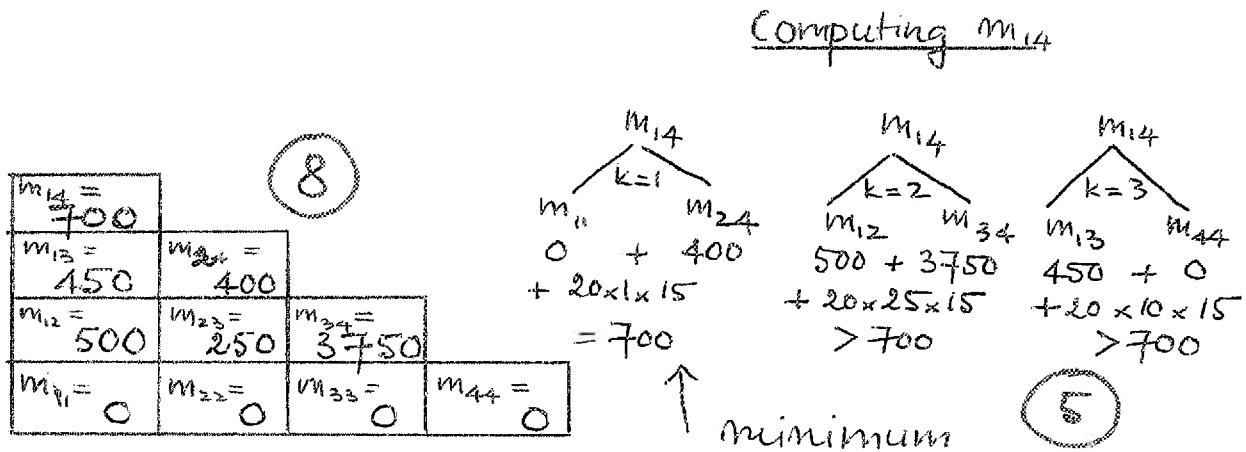 Computing m14
8
m14 = 700
m13 = 450
m24 = 400
m12 = 500
m23 = 250
m34 = 3750
m11 = 0
m22 = 0
m33 = 0
m44 = 0
m14
k=1
m11 m24
0 + 400
+ 20x1x15
= 700
minimum
m14
k=2
m12 m34
500 + 3750
+ 20x25x15
> 700
m14
k=3
m13 m44
450 + 0
+20 x 10 x 15
> 700
5